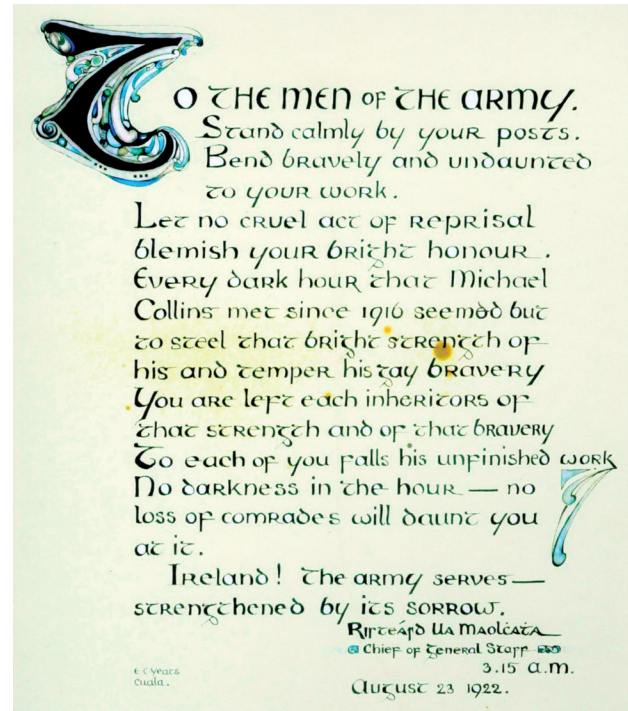 To the men of the army.
Stand calmly by your posts.
Bend bravely and undaunted
to your work.
Let no cruel act of reprisal
blemish your bright honour.
Every dark hour that Michael
Collins met since 1916 seemed but
to steel that bright strength of
his and temper his gay bravery
You are left each inheritors of
that strength and of that bravery
To each of you falls his unfinished work
No darkness in the hour — no
loss of comrades will daunt you
at it.
Ireland! The army serves—
strengthened by its sorrow.
Risteárd Ua Maolċata
Chief of General Staff
3.15 a.m.
August 23 1922.
E C Yeats
Cuala.